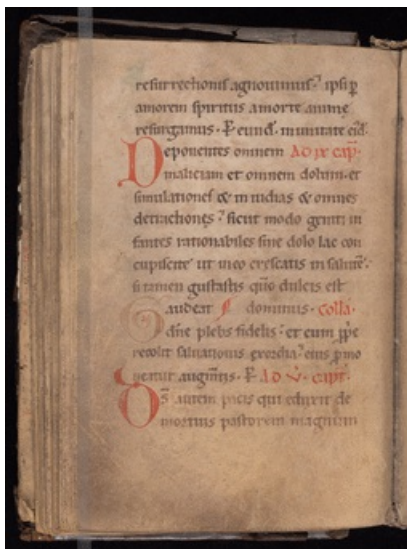 resurrectionis agnovimus ipsi p
amorem spiritus a morte anime
resurgamus. P eund. in unitate eiꝰd.
Deponentes omnem AD IX cap.
maliciam et omnem dolum. et
simulationes & invidias & omnes
detractiones sicut modo geniti in
fantes rationabiles sine dolo lac con
cupiscite ut in eo crescatis in salutē.
si tamen gustastis qm̄ dulcis est
dominus. Colla.
Gaudeat
dn̄e plebs fidelis et cum pp̄e
recolit salvationis exordia eius pmo
veatur augm̄tis. P AD V. capt.
Ds̄ autem pacis qui eduxit de
mortuis pastorem magnum